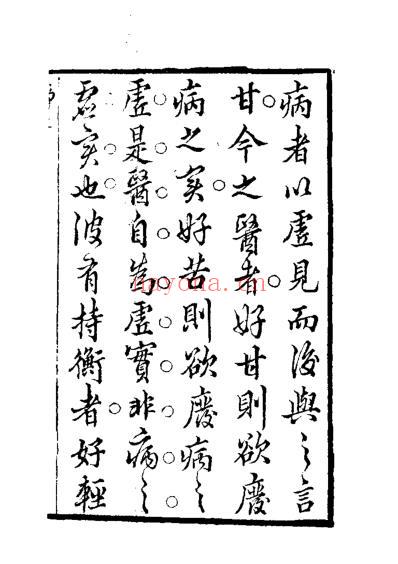 病者以虛見而後與之言
甘今之醫者好甘則欲廢
病之実好苦則欲廢病之
虛是醫自為虛實非病之
虛実也彼有持衡者好輕
nayona.cn